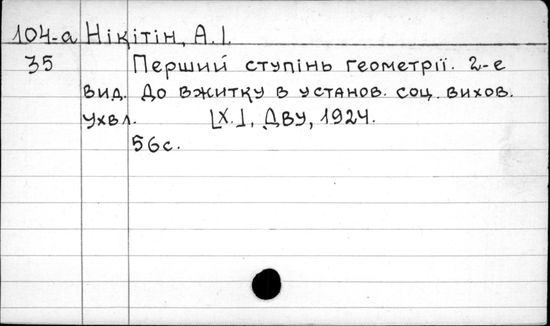 104-а Нікітін, А.І.
35 Перший ступінь геометрії. 2-е
вид. До вжитку в установ. соц. вихов.
ухвл. [Х.], ДВУ, 1924.
56с.